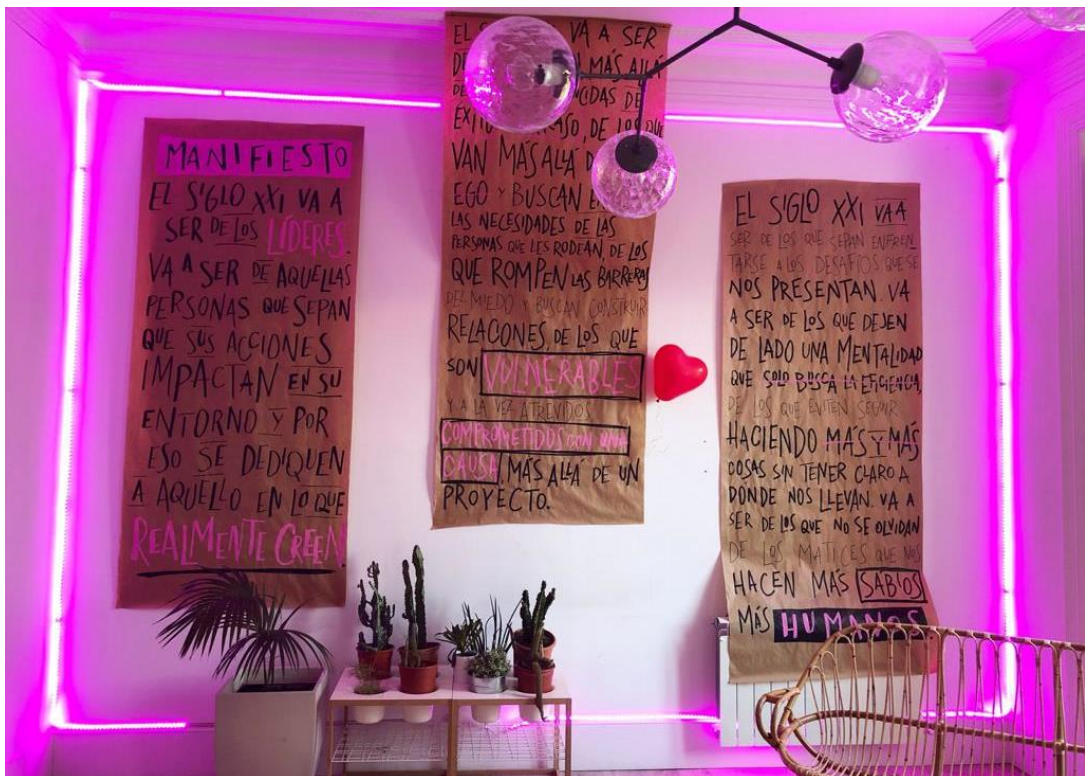 MANIFIESTO
EL SIGLO XXI VA A
SER DE LOS LÍDERES.
VA A SER DE AQUELLAS
PERSONAS QUE SEPAN
QUE SUS ACCIONES
IMPACTAN EN SU
ENTORNO Y POR
ESO SE DEDIQUEN
A AQUELLO EN LO QUE
REALMENTE CREEN!
EL VA A SER
MÁS ALLÁ
DE
ÉXITO DE LOS QUE
VAN MÁS ALLÁ
EGO Y BUSCAN
LAS NECESIDADES DE LAS
PERSONAS QUE LES RODEAN, DE LOS
QUE ROMPEN LAS BARRERAS
DEL MIEDO Y BUSCAN CONSTRUIR
RELACONES, DE LOS QUE
SON VULNERABLES
Y A LA VEZ ATREVIDOS
COMPROMETIDOS CON UNA
CAUSA, MÁS ALLÁ DE UN
PROYECTO.
EL SIGLO XXI VA A
SER DE LOS QUE SEPAN ENFREN
TARSE A LOS DESAFIOS QUE SE
NOS PRESENTAN. VA
A SER DE LOS QUE DEJEN
DE LADO UNA MENTALIDAD
QUE SOLO BUSCA LA EFICIENCIA,
DE LOS QUE EVITEN SEGUIR
HACIENDO MÁS Y MÁS
COSAS SIN TENER CLARO A
DONDE NOS LLEVAN. VA A
SER DE LOS QUE NO SE OLVIDAN
DE LOS MATICES QUE NOS
HACEN MÁS SABIOS
MÁS HUMANOS